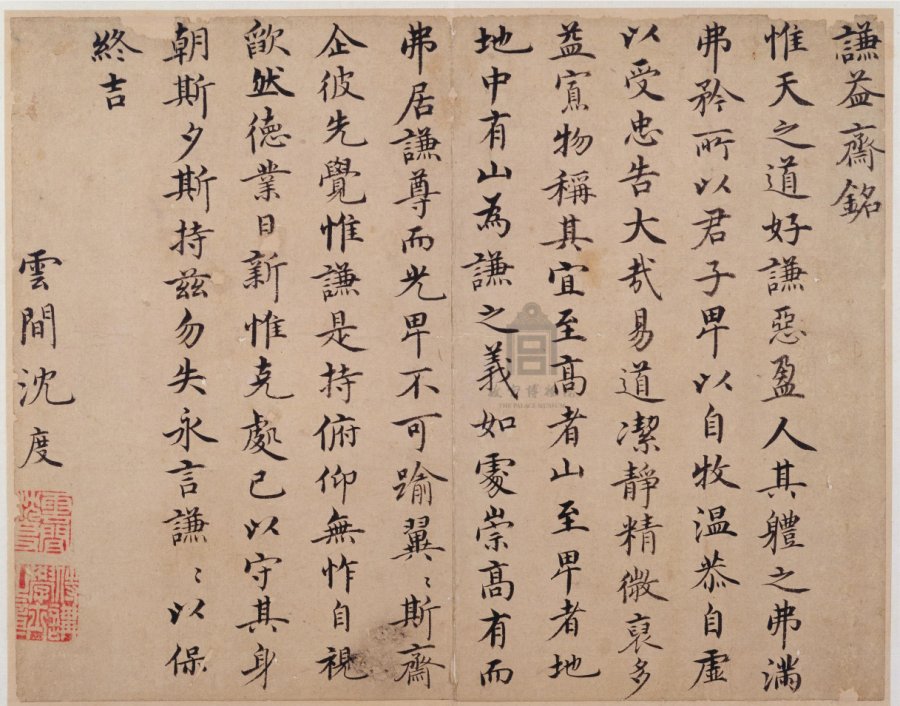 謙益齋銘
惟天之道好謙惡盈人其軆之弗滿
弗矜所以君子卑以自牧温恭自虛
以受忠告大哉易道潔靜精微裒多
益寡物稱其宜至髙者山至卑者地
地中有山為謙之義如䖏崇髙有而
弗居謙尊而光卑不可踰翼〻斯齋
企彼先覺惟謙是持俯仰無怍自視
欿然德業日新惟克處己以守其身
朝斯夕斯持茲勿失永言謙〻以保
終吉
雲間沈度
故宫博物院
THE PALACE MUSEUM